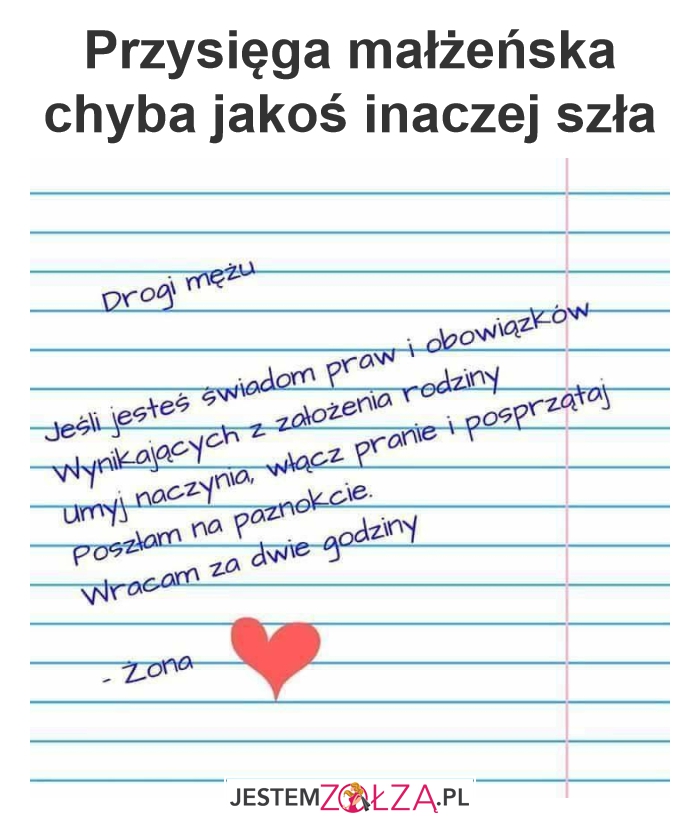 Przysięga małżeńska
chyba jakoś inaczej szła
Drogi mężu
Jeśli jesteś świadom praw i obowiązków
Wynikających z założenia rodziny
umyj naczynia, włącz pranie i posprzątaj
Poszłam na paznokcie.
Wracam za dwie godziny
- Żona
JESTEMZOŁZĄ.PL